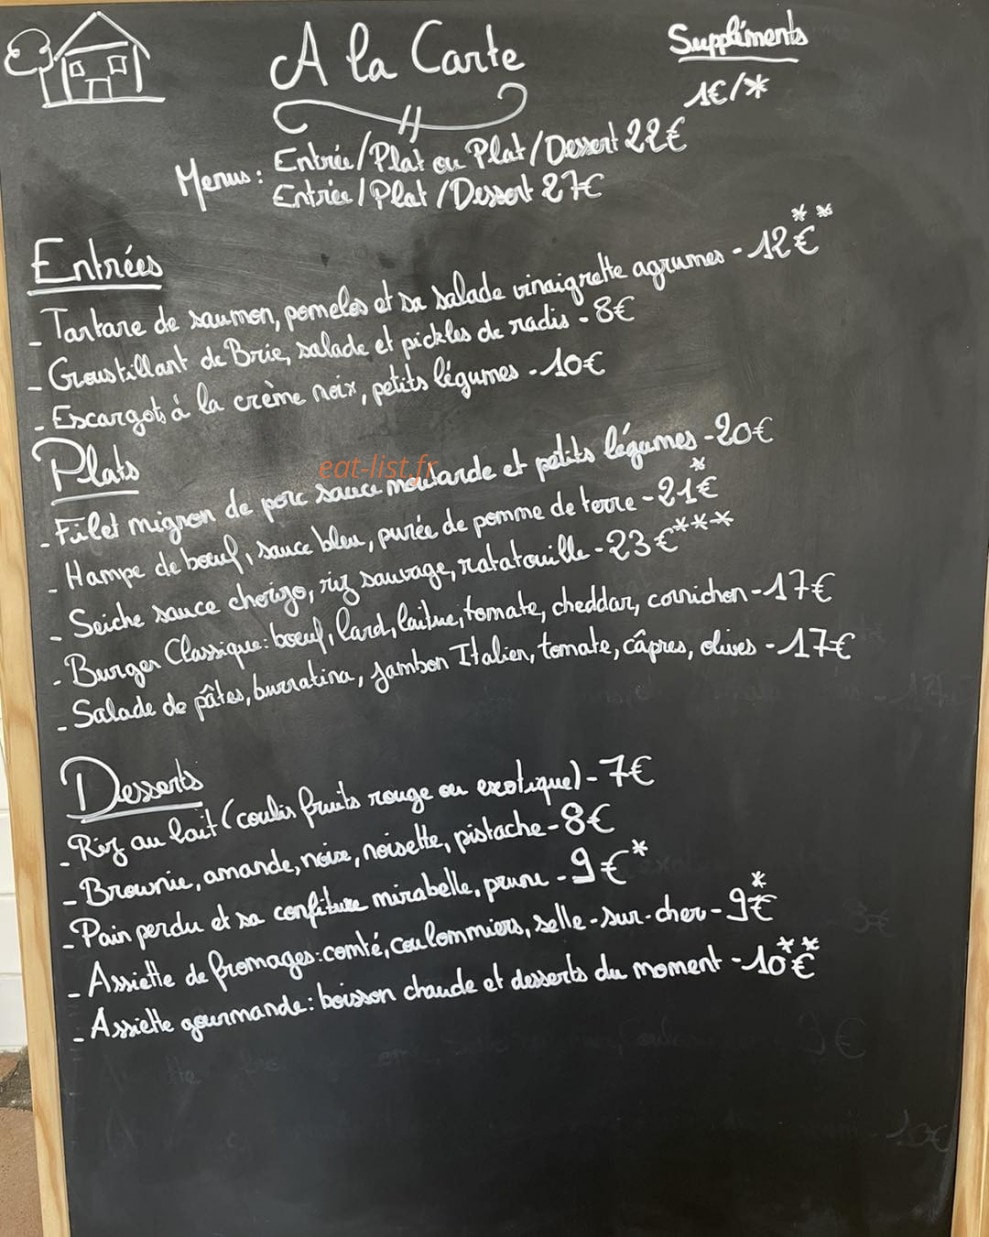 A la Carte
Suppléments
1€/*
Menus: Entrée/Plat ou Plat/Dessert 22€
Entrée/Plat/Dessert 27€
Entrées
- Tartare de saumon, pomelos et sa salade vinaigrette agrumes - 12€**
- Croustillant de Brie, salade et pickles de radis - 8€
- Escargots à la crème noix, petits légumes - 10€
Plats
eat-list.fr
- Filet mignon de porc sauce moutarde et petits légumes - 20€
- Hampe de bœuf, sauce bleu, purée de pomme de terre - 21€*
- Seiche sauce chorizo, riz sauvage, ratatouille - 23€***
- Burger Classique: bœuf, lard, laitue, tomate, cheddar, cornichon - 17€
- Salade de pâtes, burratina, jambon Italien, tomate, câpres, olives - 17€
Desserts
- Riz au lait (coulis fruits rouge ou exotique) - 7€
- Brownie, amande, noix, noisette, pistache - 8€
- Pain perdu et sa confiture mirabelle, prune - 9€*
- Assiette de fromages: comté, coulommiers, selle-sur-cher - 9€*
- Assiette gourmande: boisson chaude et desserts du moment - 10€**